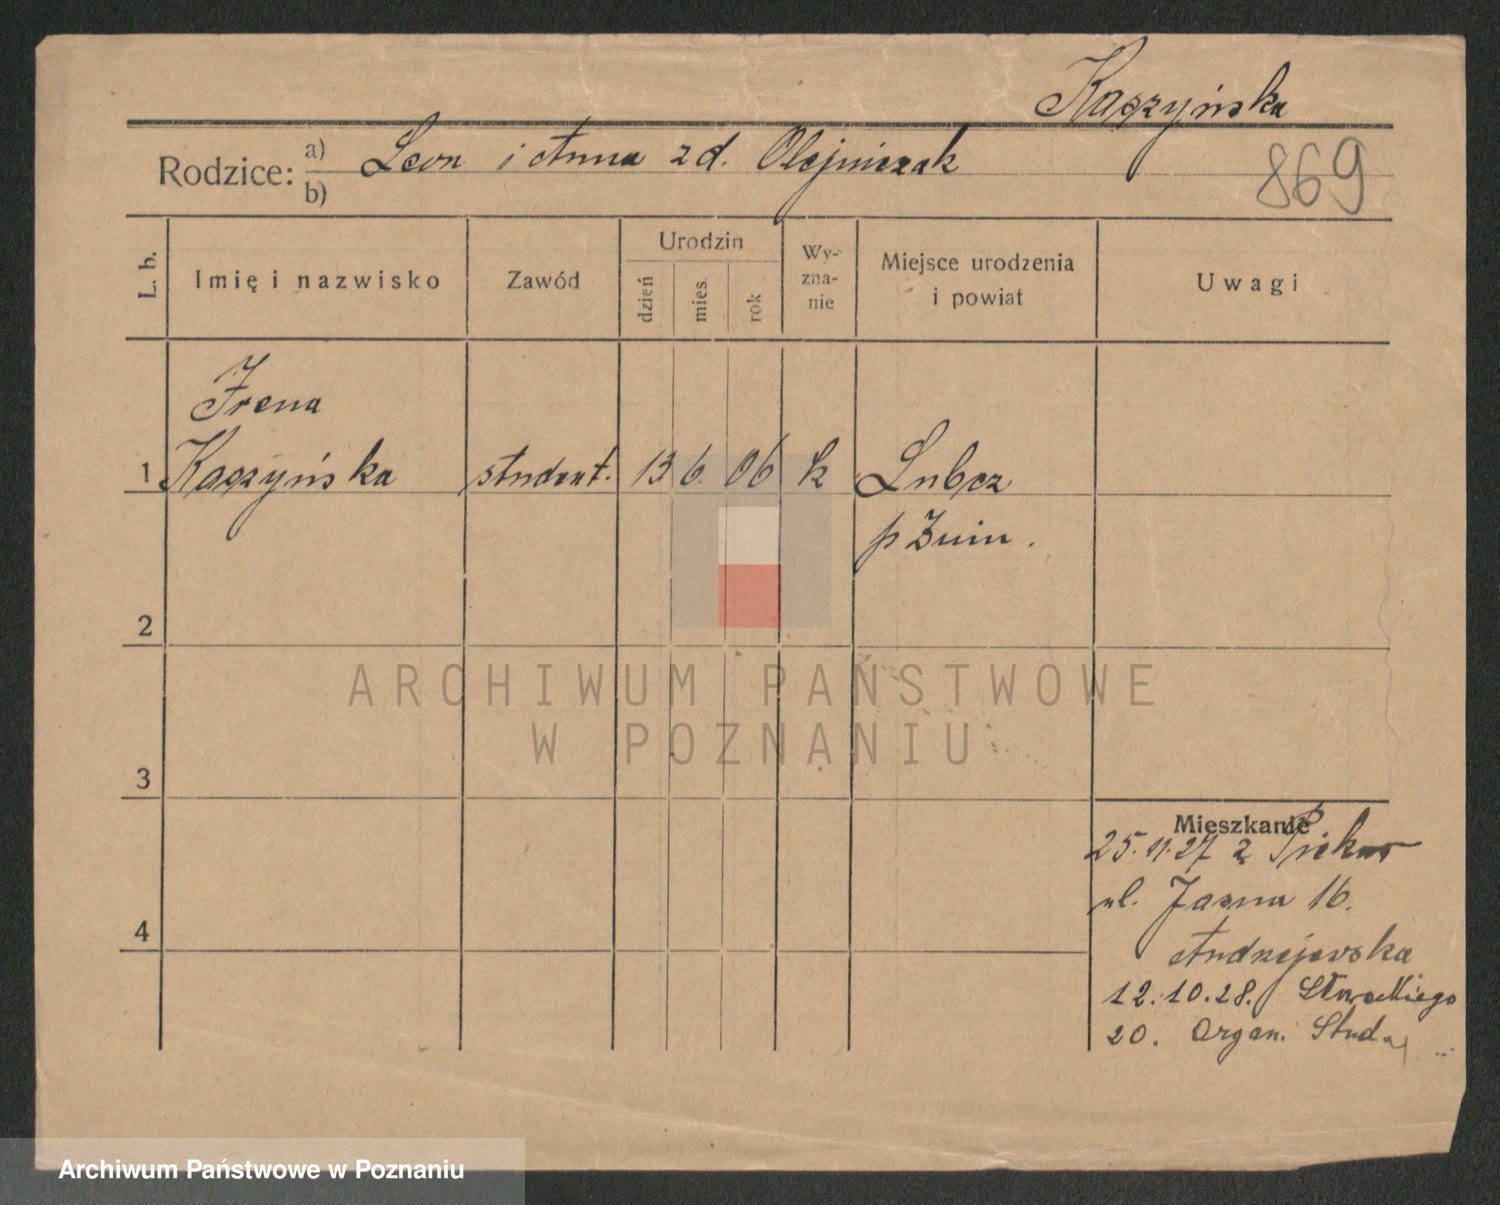 Kaczyńska
Rodzice: a) Leon i Anna z d. Olejniczak
b)
869
L. b.
Imię i nazwisko
Zawód
Urodzin
dzień
mies.
rok
Wy-
zna-
nie
Miejsce urodzenia
i powiat
Uwagi
Irena
1 Kaczyńska student. 13 6. 06 k Lubcz
p Żnin.
2
ARCHIWUM PAŃSTWOWE
W POZNANIU
3
Mieszkanie
25.11.27 z
ul. Jasna 16.
4
Andrzejewska
12.10.28. Słowackiego
20. Organ. Stud.
Archiwum Państwowe w Poznaniu